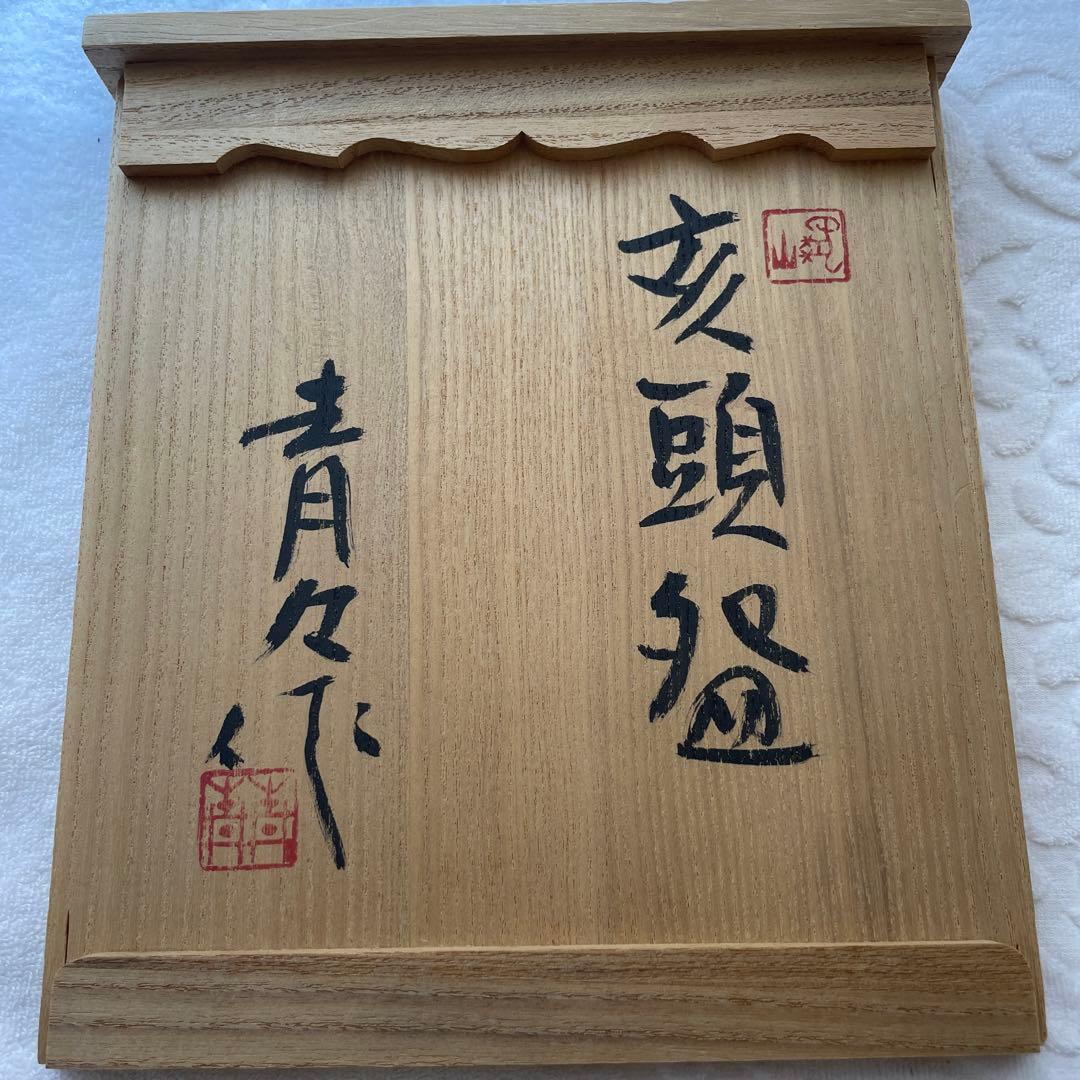 亥頭盌
青々作